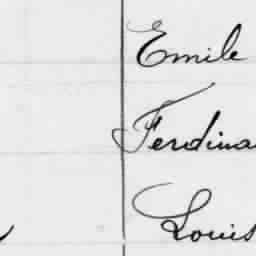 Emile
Ferdina
Louis